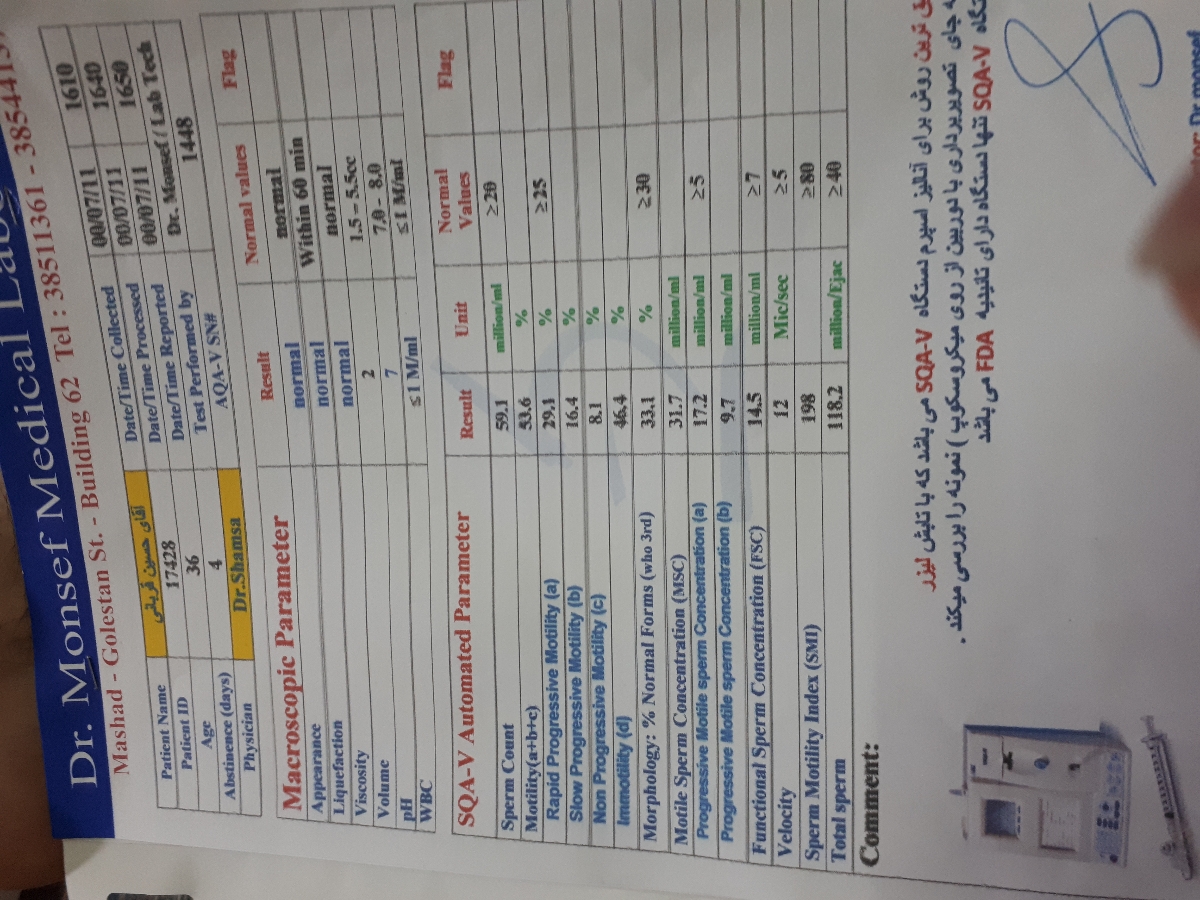 Dr. Monsef Medical Lab
Mashad - Golestan St. - Building 62 Tel : 38511361 - 3854413
Patient Name آقای حسین قربانی Date/Time Collected 00/07/11 1610
Patient ID 17428 Date/Time Processed 00/07/11 1640
Age 36 Date/Time Reported 00/07/11 1650
Abstinence (days) 4 Test Performed by Dr. Monsef / Lab Tech
Physician Dr.Shamsa AQA-V SN# 1448
Macroscopic Parameter Result Normal values Flag
Appearance normal normal
Liquefaction normal Within 60 min
Viscosity normal normal
Volume 2 1.5 – 5.5cc
pH 7 7.0 - 8.0
WBC ≤1 M/ml ≤1 M/ml
SQA-V Automated Parameter Result Unit Normal Values Flag
Sperm Count 59.1 million/ml ≥20
Motility(a+b+c) 53.6 %
Rapid Progressive Motility (a) 29.1 % ≥25
Slow Progressive Motility (b) 16.4 %
Non Progressive Motility (c) 8.1 %
Immotility (d) 46.4 %
Morphology: % Normal Forms (who 3rd) 33.1 % ≥30
Motile Sperm Concentration (MSC) 31.7 million/ml
Progressive Motile sperm Concentration (a) 17.2 million/ml ≥5
Progressive Motile sperm Concentration (b) 9.7 million/ml
Functional Sperm Concentration (FSC) 14.5 million/ml ≥7
Velocity 12 Mic/sec ≥5
Sperm Motility Index (SMI) 198 ≥80
Total sperm 118.2 million/Ejac ≥40
Comment:
ترین روش برای آنالیز اسپرم دستگاه SQA-V می باشد که با تابش لیزر
جای تصویربرداری با دوربین از روی میکروسکوپ ) نمونه را بررسی میکند .
SQA-V تنها دستگاه دارای تائیدیه FDA می باشد
or: Dr.monsef